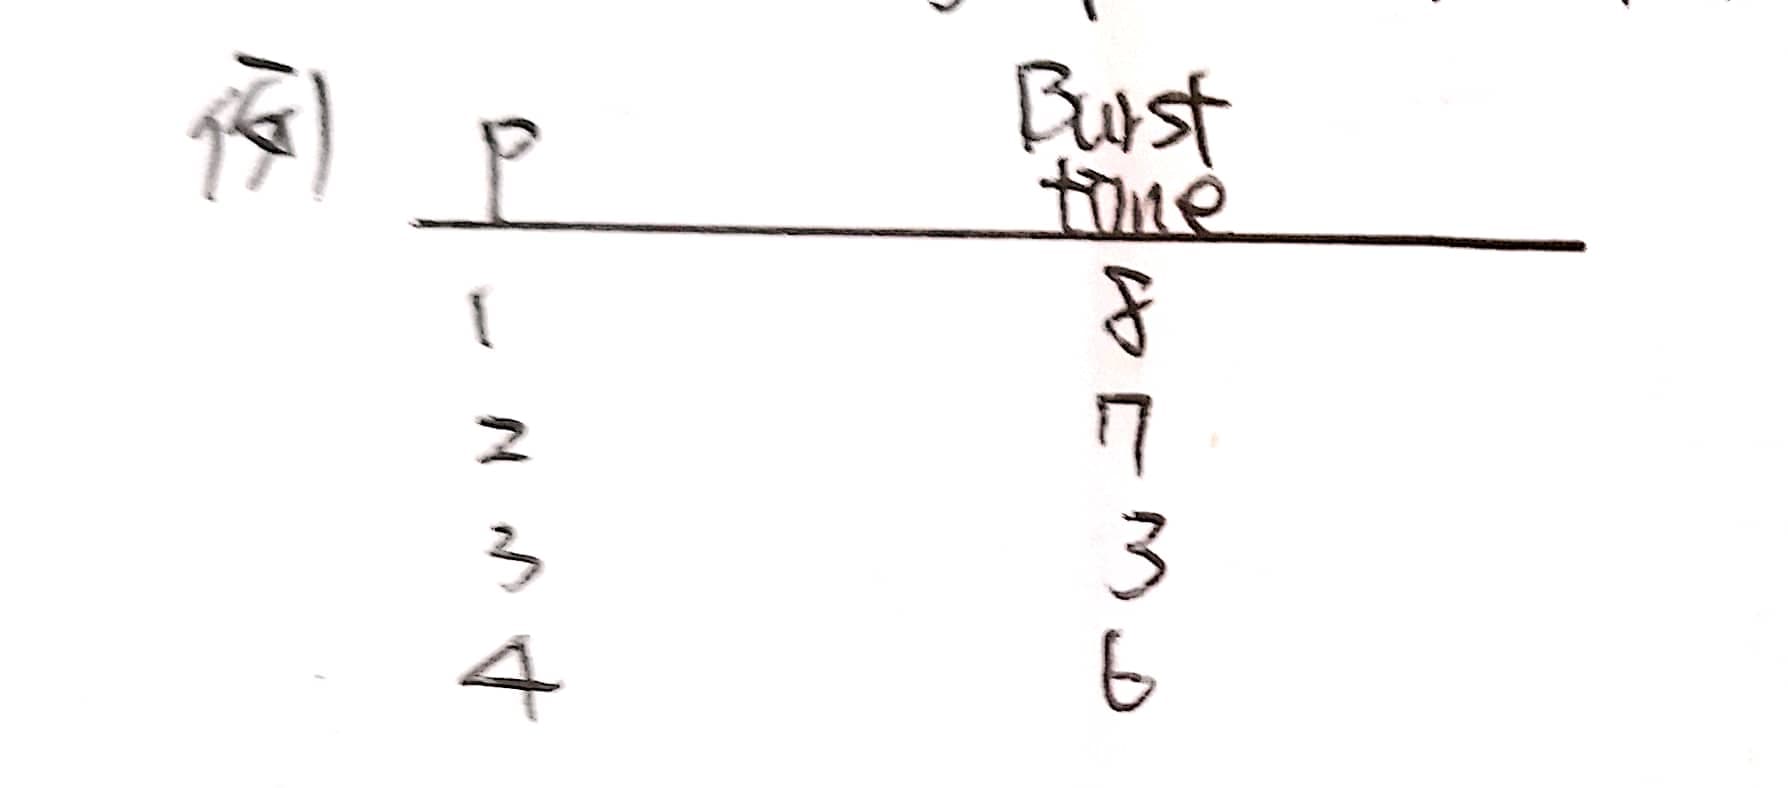 例 P Burst
time
1 8
2 7
3 3
4 6